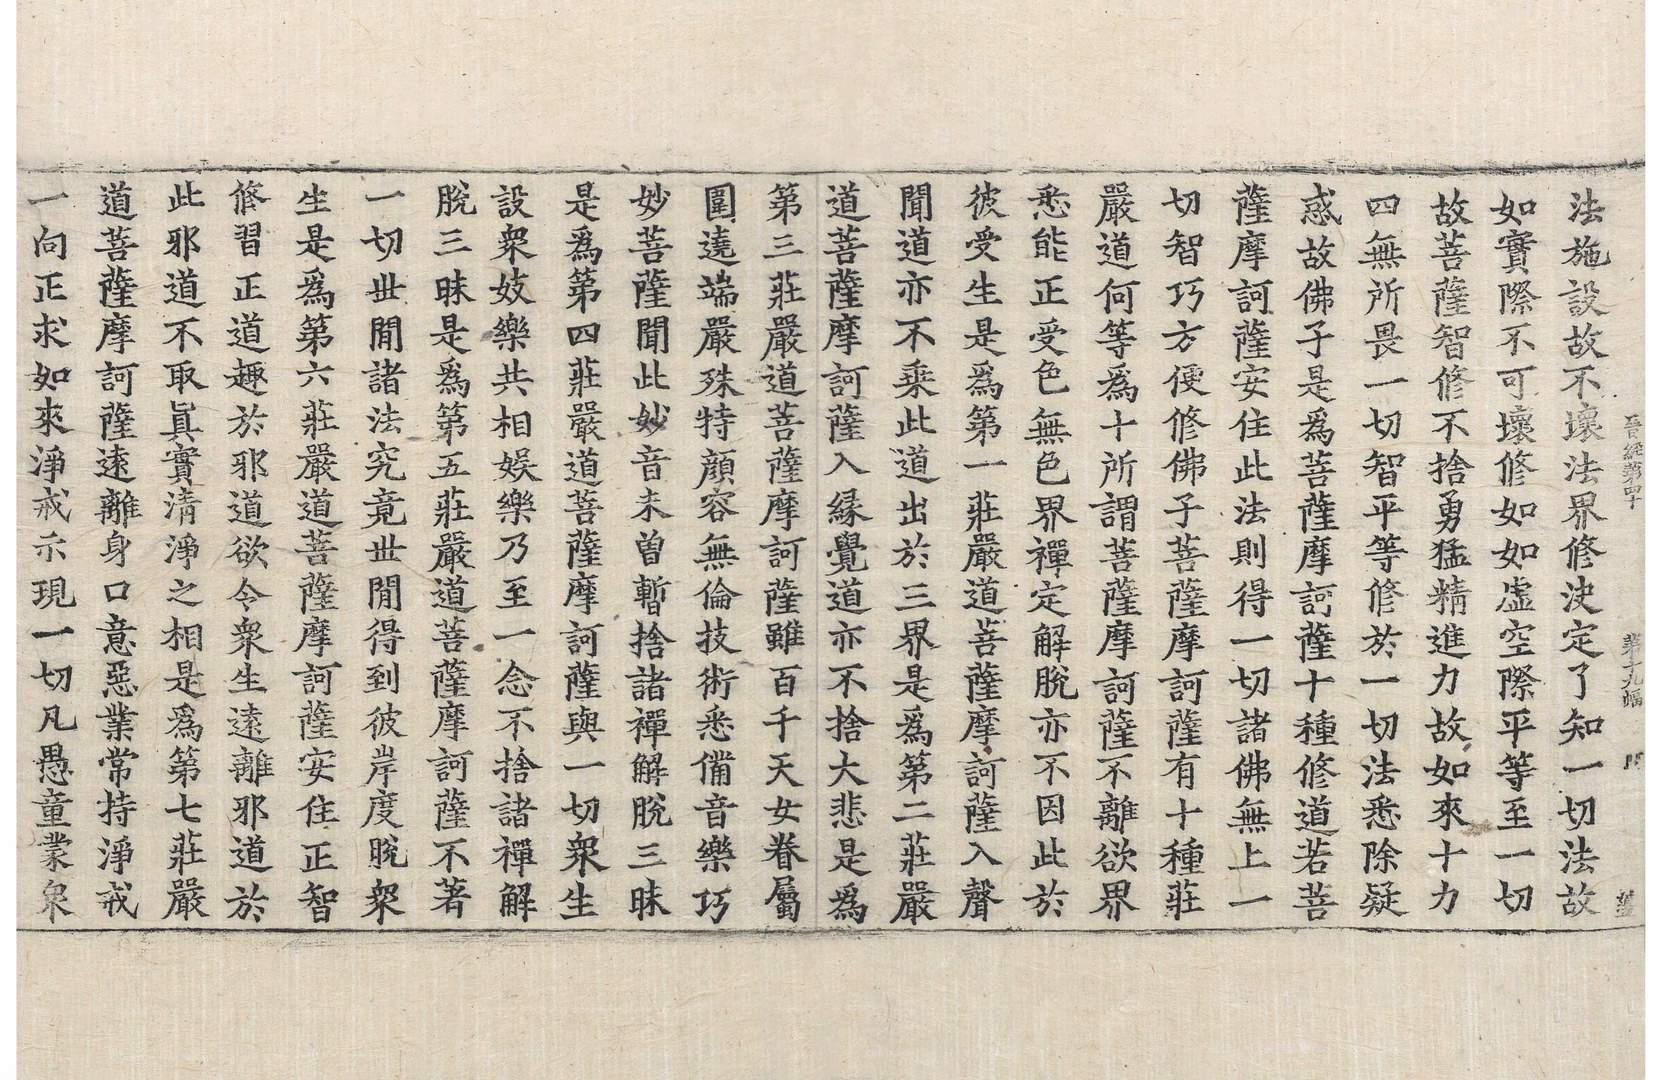 晉經第四十 第十九幅
法施設故不壞法界修決定了知一切法故
如實際不可壞修如如虛空際平等至一切
故菩薩智修不捨勇猛精進力故如來十力
四無所畏一切智平等修於一切法悉除疑
惑故佛子是爲菩薩摩訶薩十種修道若菩
薩摩訶薩安住此法則得一切諸佛無上一
切智巧方便修佛子菩薩摩訶薩有十種莊
嚴道何等爲十所謂菩薩摩訶薩不離欲界
悉能正受色無色界禪定解脫亦不因此於
彼受生是爲第一莊嚴道菩薩摩訶薩入聲
聞道亦不乘此道出於三界是爲第二莊嚴
道菩薩摩訶薩入緣覺道亦不捨大悲是爲
第三莊嚴道菩薩摩訶薩雖百千天女眷屬
圍遶端嚴殊特顏容無倫技術悉備音樂巧
妙菩薩聞此妙音未曾暫捨諸禪解脫三昧
是爲第四莊嚴道菩薩摩訶薩與一切衆生
設衆妓樂共相娛樂乃至一念不捨諸禪解
脫三昧是爲第五莊嚴道菩薩摩訶薩不著
一切世閒諸法究竟世閒得到彼岸度脫衆
生是爲第六莊嚴道菩薩摩訶薩安住正智
修習正道趣於邪道欲令衆生遠離邪道於
此邪道不取眞實清淨之相是爲第七莊嚴
道菩薩摩訶薩遠離身口意惡業常持淨戒
一向正求如來淨戒示現一切凡愚童蒙衆